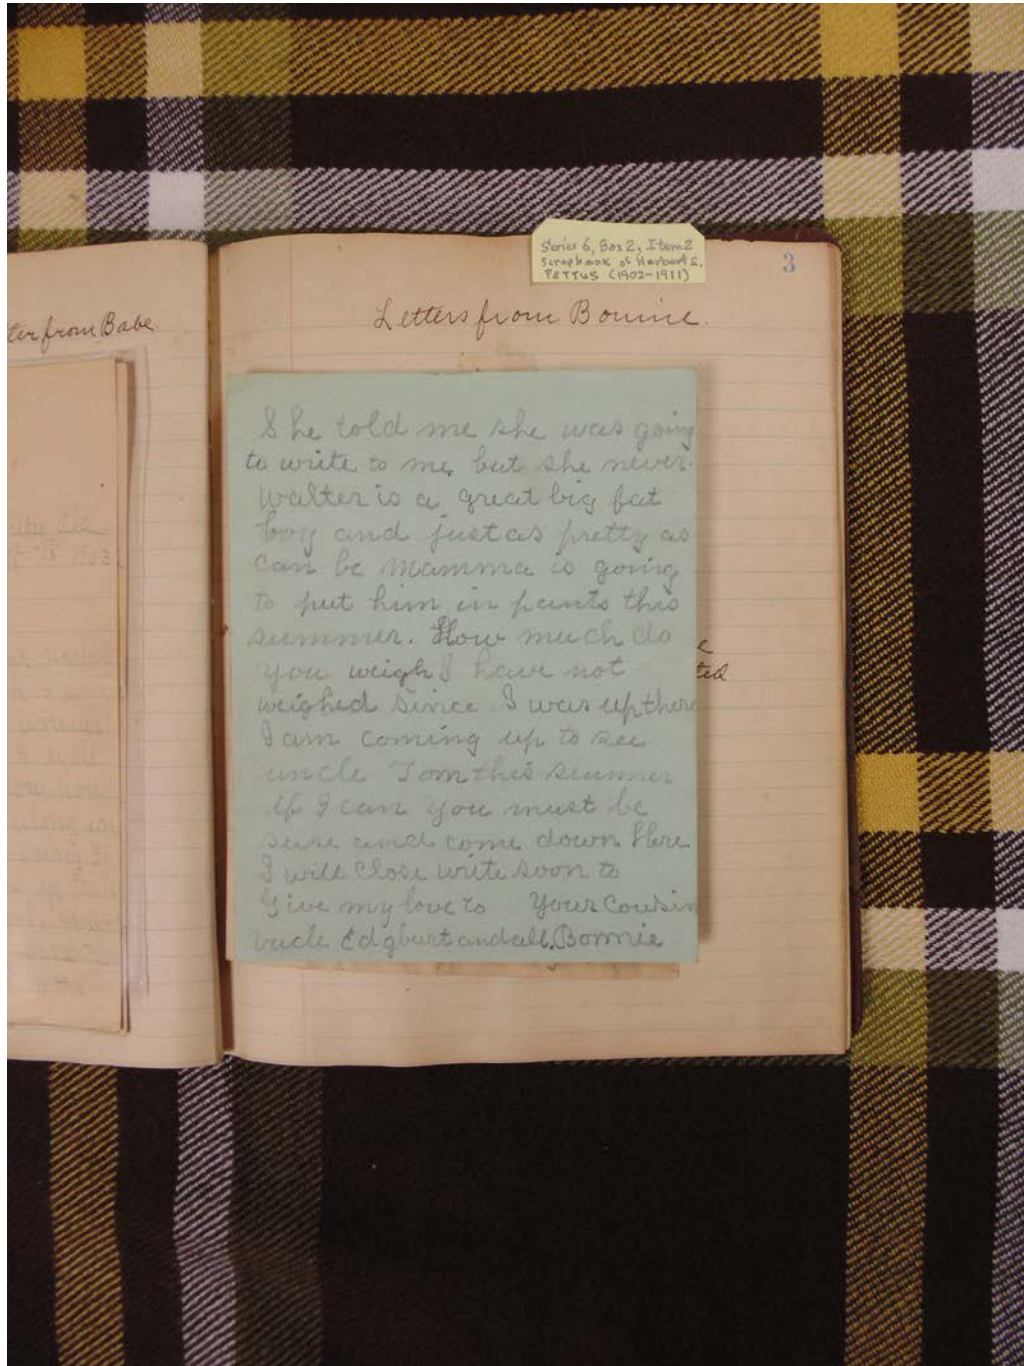 ter from Babe
Series 6, Box 2, Item 2
Scrapbook of Herbert E.
PETTUS (1902-1911)
3
Letters from Bonnie.
She told me she was going
to write to me, but she never.
Walter is a great big fat
boy and just as pretty as
can be Mamma is going
to put him in pants this
summer. How much do
you weigh I have not
weighed since I was up there
I am coming up to see
uncle Tom this summer
if I can you must be
sure and come down Here
I will close write soon to
Give my love to Your Cousin
uncle Ed gburt and all. Bonnie
ted
1903